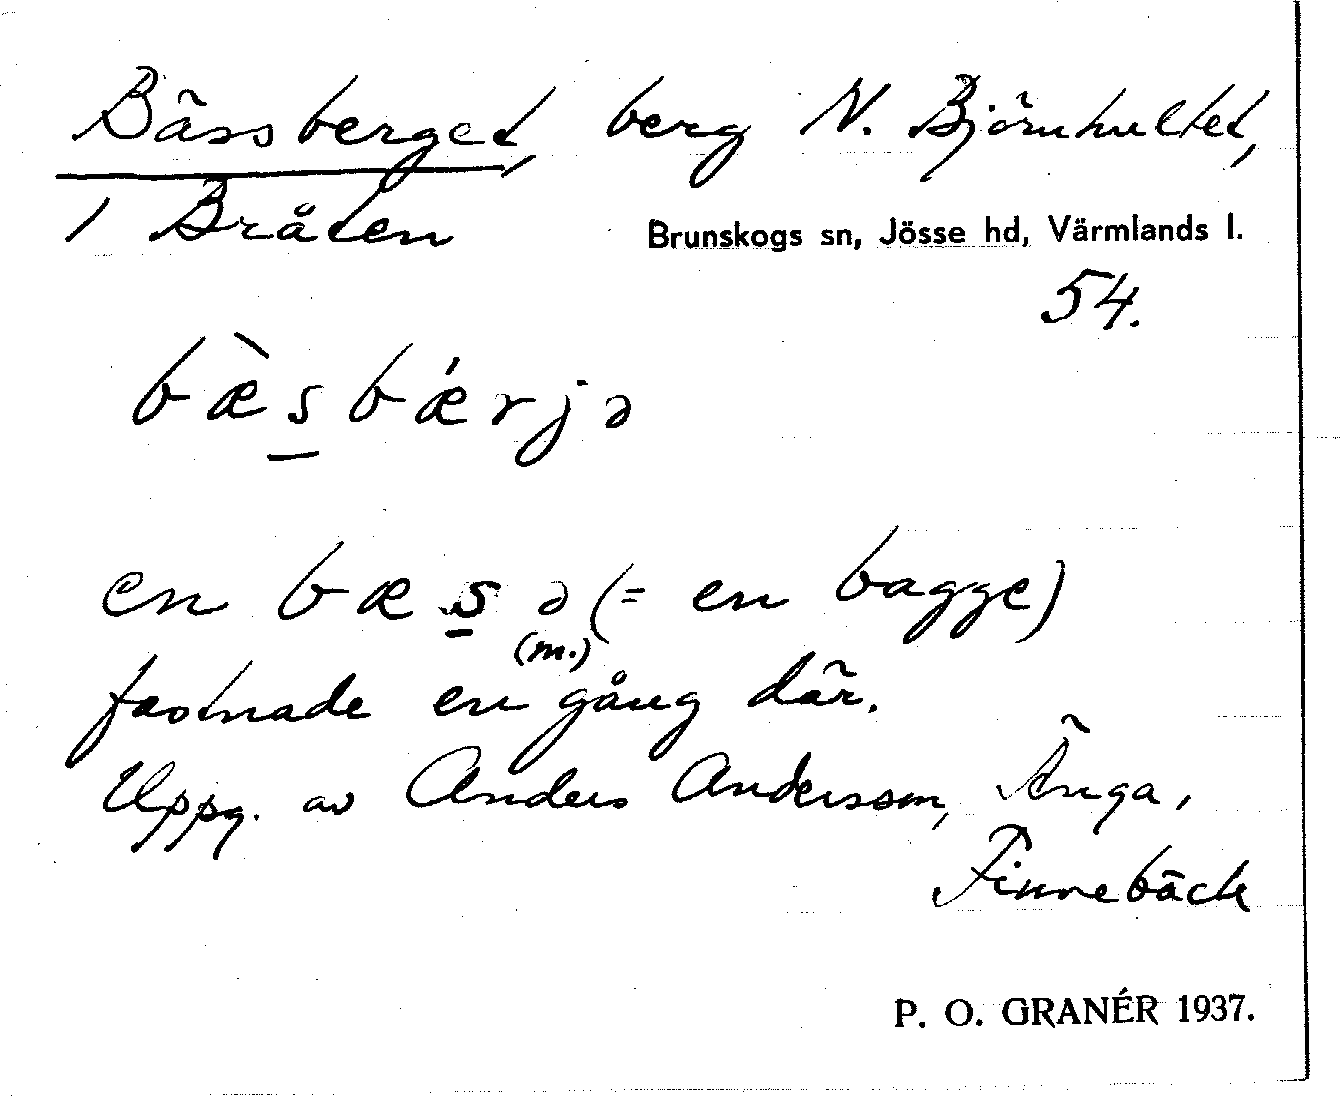 Bässberget, berg N. Björnhultet,
/ Bråten
Brunskogs sn, Jösse hd, Värmlands l.
54.
bæ̀s̲bǽrjə
en bæs̲ə (= en bagge)
(m.)
fastnade en gång där.
Uppg. av Anders Andersson, Änga,
Finnebäck
P. O. GRANÉR 1937.